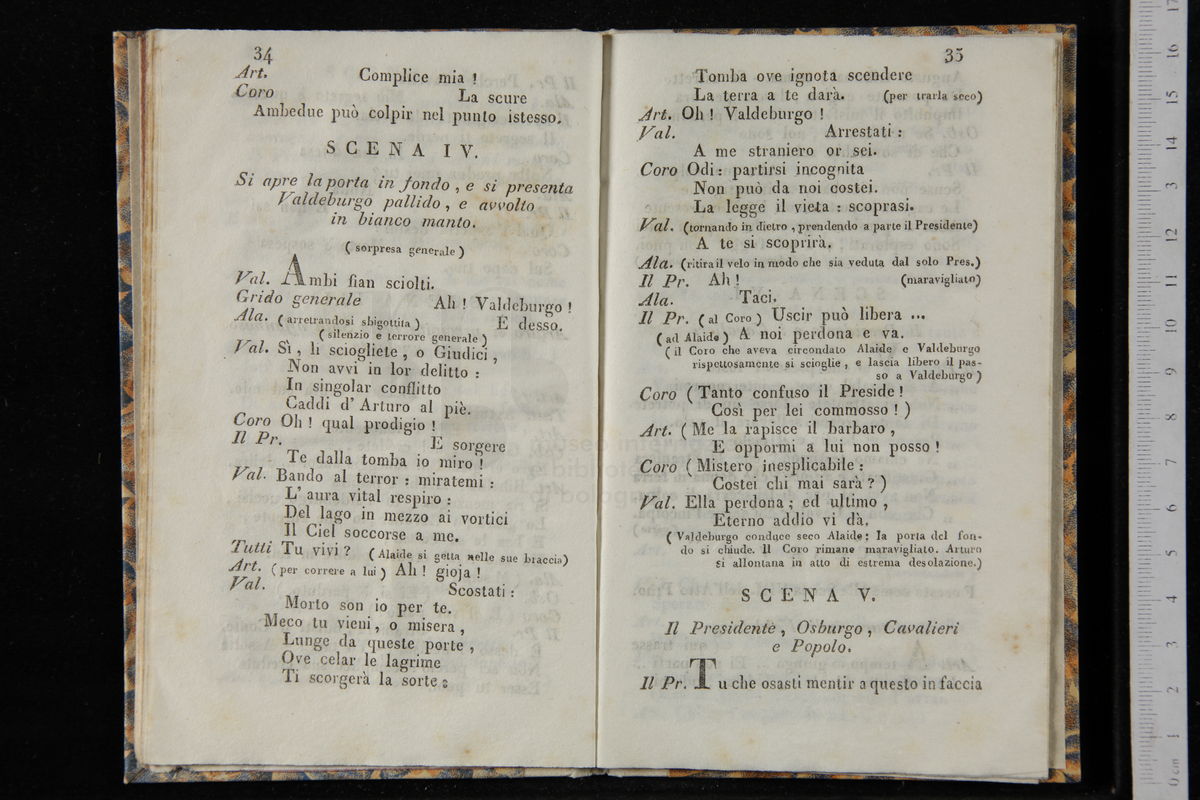 34
Art. Complice mia !
Coro La scure
Ambedue può colpir nel punto istesso.
SCENA IV.
Si apre la porta in fondo , e si presenta
Valdeburgo pallido , e avvolto
in bianco manto.
( sorpresa generale )
Val. Ambi fian sciolti.
Grido generale Ah ! Valdeburgo !
Ala. ( arretrandosi sbigottita ) E desso.
( silenzio e terrore generale )
Val. Sì , li sciogliete , o Giudici ,
Non avvi in lor delitto :
In singolar conflitto
Caddi d' Arturo al piè.
Coro Oh ! qual prodigio !
Il Pr. E sorgere
Te dalla tomba io miro !
Val. Bando al terror : miratemi :
L' aura vital respiro :
Del lago in mezzo ai vortici
Il Ciel soccorse a me.
Tutti Tu vivi ? ( Alaide si getta nelle sue braccia)
Art. ( per correre a lui ) Ah ! gioja !
Val. Scostati :
Morto son io per te.
Meco tu vieni , o misera ,
Lunge da queste porte ,
Ove celar le lagrime
Ti scorgerà la sorte :
35
Tomba ove ignota scendere
La terra a te darà. (per trarla seco)
Art. Oh ! Valdeburgo !
Val. Arrestati :
A me straniero or sei.
Coro Odi : partirsi incognita
Non può da noi costei.
La legge il vieta : scoprasi.
Val. (tornando in dietro , prendendo a parte il Presidente)
A te si scoprirà.
Ala. (ritira il velo in modo che sia veduta dal solo Pres.)
Il Pr. Ah ! (maravigliato)
Ala. Taci.
Il Pr. ( al Coro ) Uscir può libera ...
( ad Alaide ) A noi perdona e va.
( il Coro che aveva circondato Alaide e Valdeburgo
rispettosamente si scioglie , e lascia libero il pas-
so a Valdeburgo )
Coro ( Tanto confuso il Preside !
Così per lei commosso ! )
Art. ( Me la rapisce il barbaro ,
E oppormi a lui non posso !
Coro ( Mistero inesplicabile :
Costei chi mai sarà ? )
Val. Ella perdona ; ed ultimo ,
Eterno addio vi dà.
( Valdeburgo conduce seco Alaide : la porta del fon-
do si chiude. Il Coro rimane maravigliato. Arturo
si allontana in atto di estrema desolazione.)
SCENA V.
Il Presidente , Osburgo , Cavalieri
e Popolo.
Il Pr. Tu che osasti mentir a questo in faccia